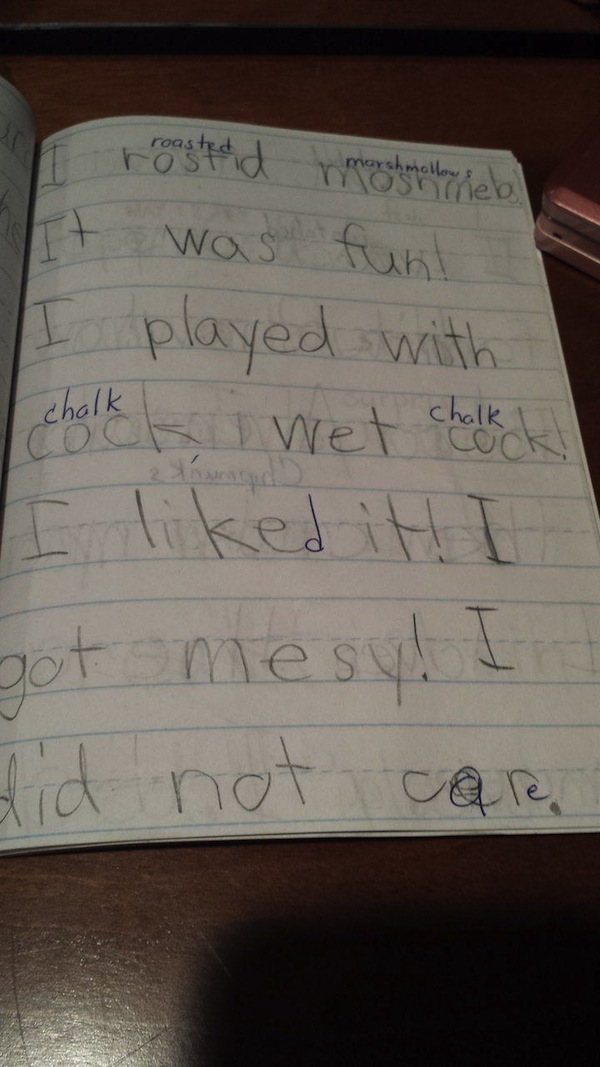 roasted marshmallows
I rostid moshmels.
It was fun!
I played with
chalk chalk
cock, wet cock!
Chipmunks
I liked it! I
got mesy! I
did not care.